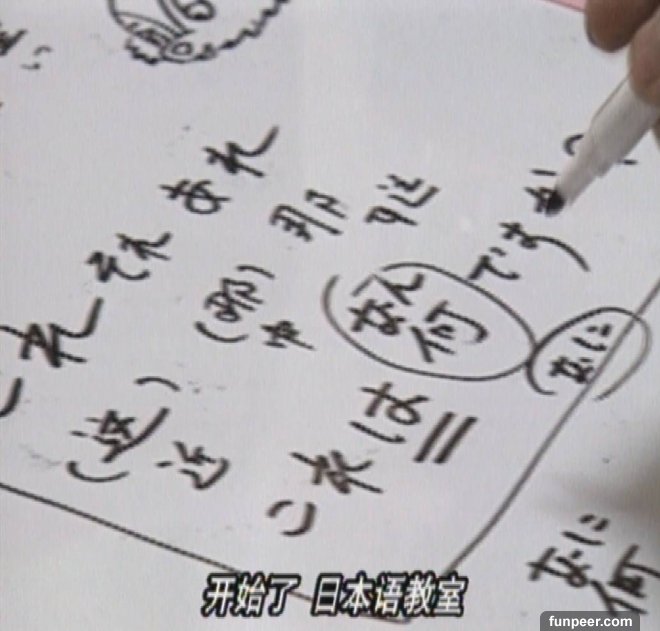 これ それ あれ
(这) (那) 那 哪
这 中
これは なん 何 ですか?
(なに)
なに
何
开始了 日本语教室
funpeer.com